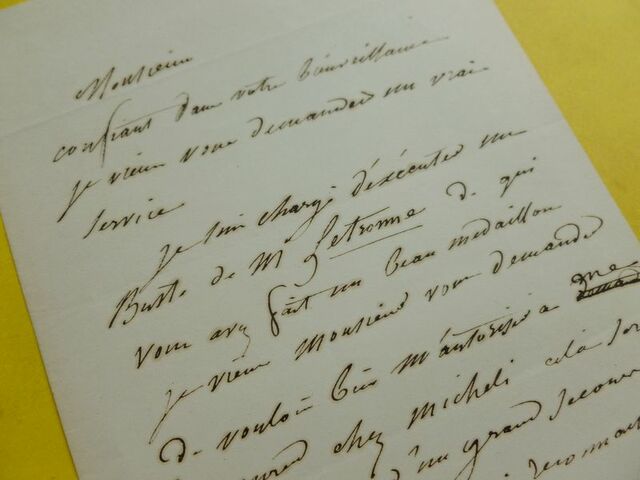 Monsieur
confiant dans votre bienveillance
je viens vous demander un vrai
service
je suis chargé d'éxécuter un
Buste de Mr Letronne de qui
vous avez fait un beau medaillon
je viens Monsieur vous demander
de vouloir bien m'autoriser a me
chez Micheli cela
d'un grand secours